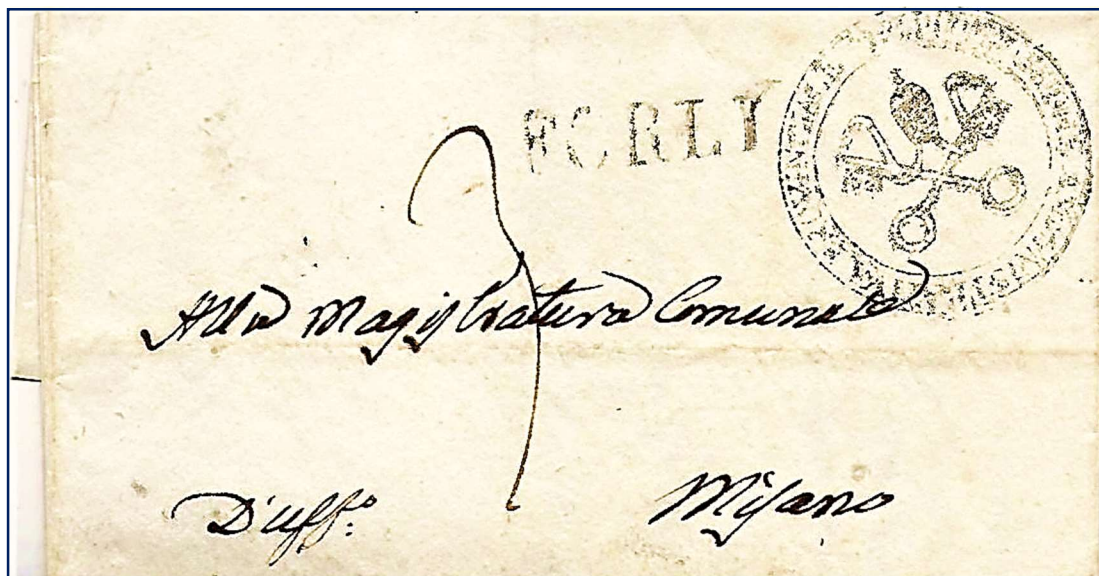 FORLI
3
Alla Magistratura Comunale
D'uff.º
Misano